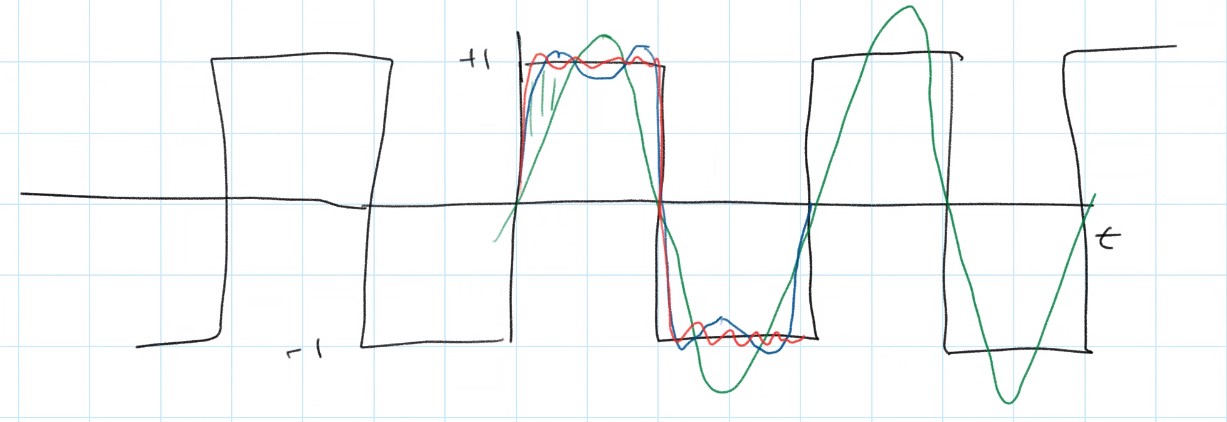 +1
-1
t